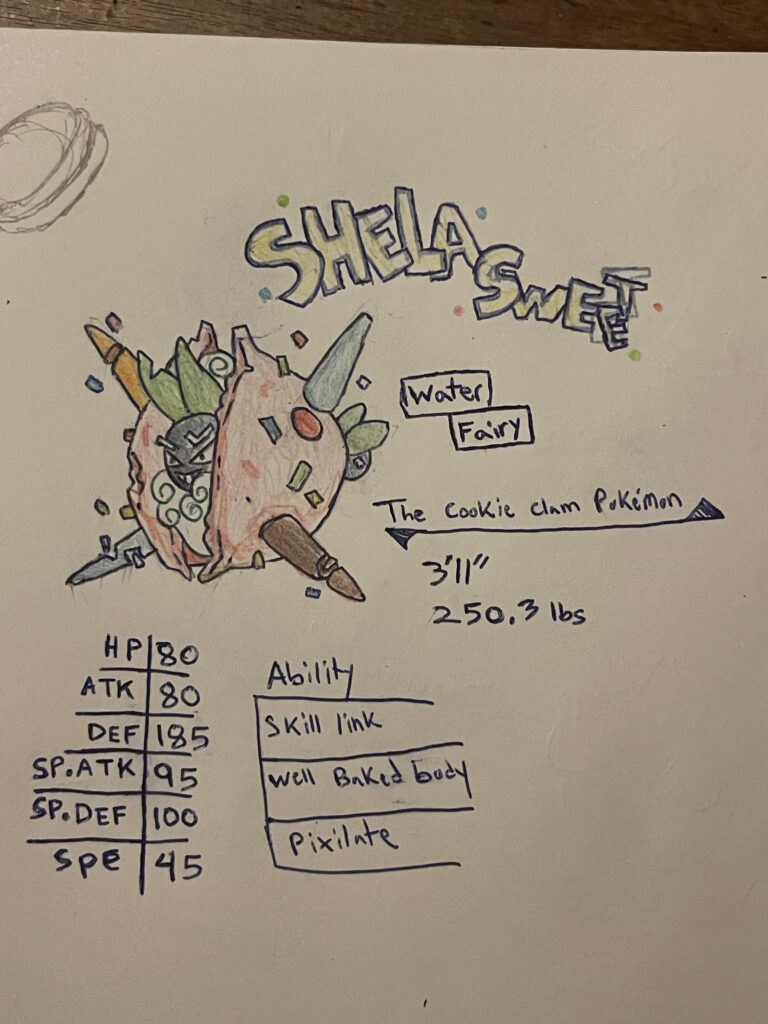 SHELA
SWEET
Water
Fairy
The Cookie clam Pokémon
3'11"
250.3 lbs
HP 80
ATK 80
DEF 185
SP.ATK 95
SP.DEF 100
SPE 45
Ability
Skill link
Well Baked body
Pixilate